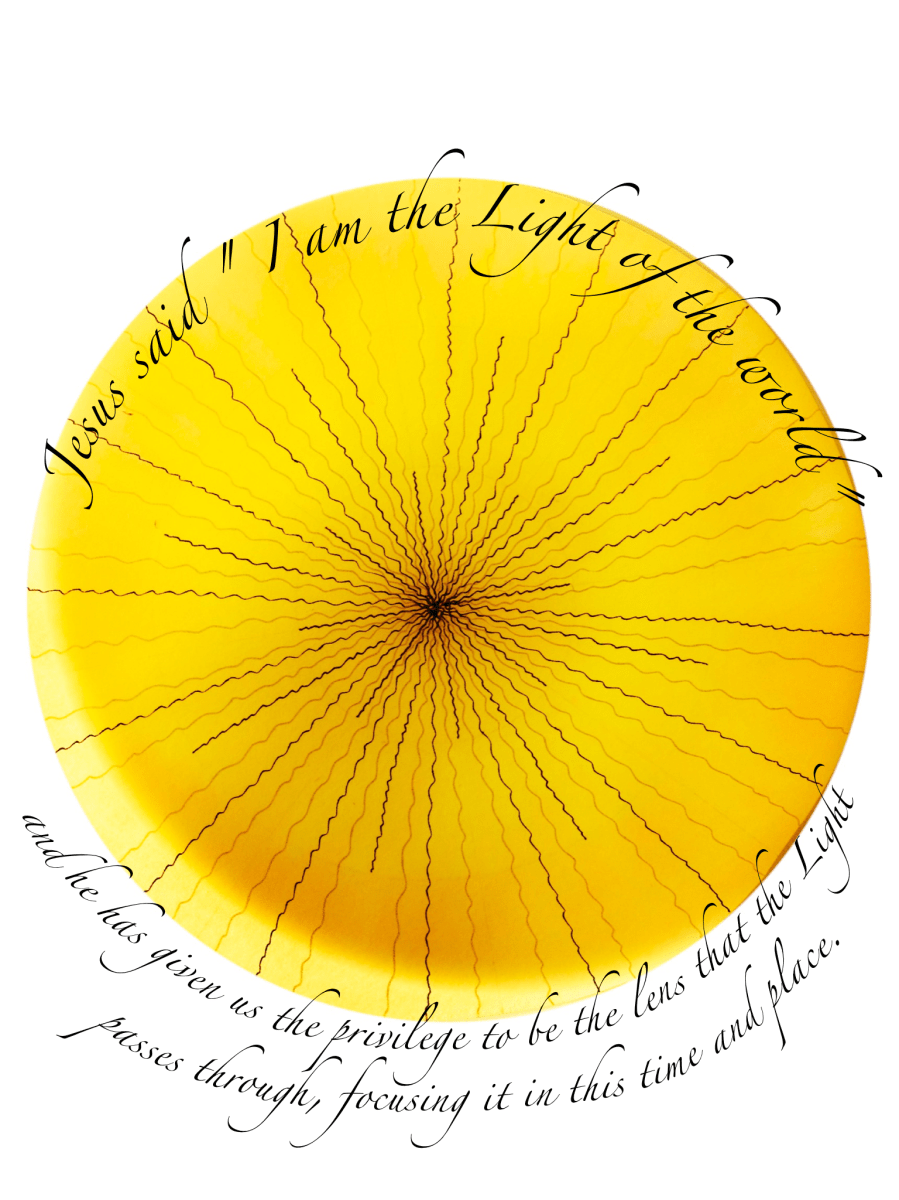 Jesus said " I am the Light of the world "
and he has given us the privilege to be the lens that the Light
passes through, focusing it in this time and place.